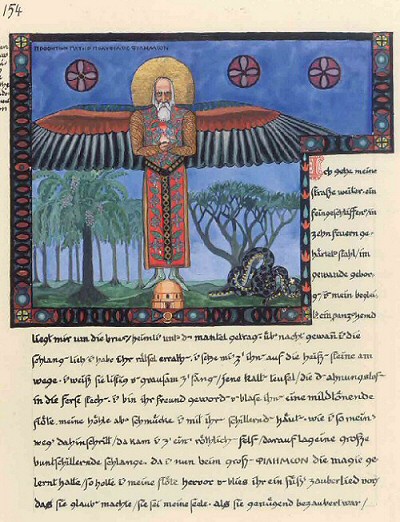 154
ΠΡΟΦΗΤΩΝ ΠΑΤΗΡ ΠΟΛΥΦΙΛΟΣ ΦΙΛΗΜΩΝ
Ich gehe meine
straße weiter · ein
feingeschliffen/in
zehn feuern ge-
härtet stahl/im
gewande gebor-
g/ist mein beglei-
ein panzerhemd
liegt mir um die brust/heimli unt d mantel getrag · üb nacht gewan i die
schlang lieb i habe ihr rätsel errath · i setze mi z ihn auf die heiß steine am
wege · i weiß sie listig v grausam z fang/jene kalt teufel/die d ahnungslos-
in die ferse stech · i bin ihr freund geword v blase ihn eine mildtönende
flöte · meine höhle ab schmücke i mit ihr schillernd häut · wie i so mein
weg dahinschritt/da kam i z ein röthlich fels/darauf lag eine große
buntschillernde schlange · da i nun beim groß ΦΙΛΗΜΩΝ die magie ge-
lernt hatte/so holte i meine flöte hervor v blies ihr ein süß zauberlied vor/
das sie glaub machte/sie sei meine seele · als sie genügend bezaubert war/